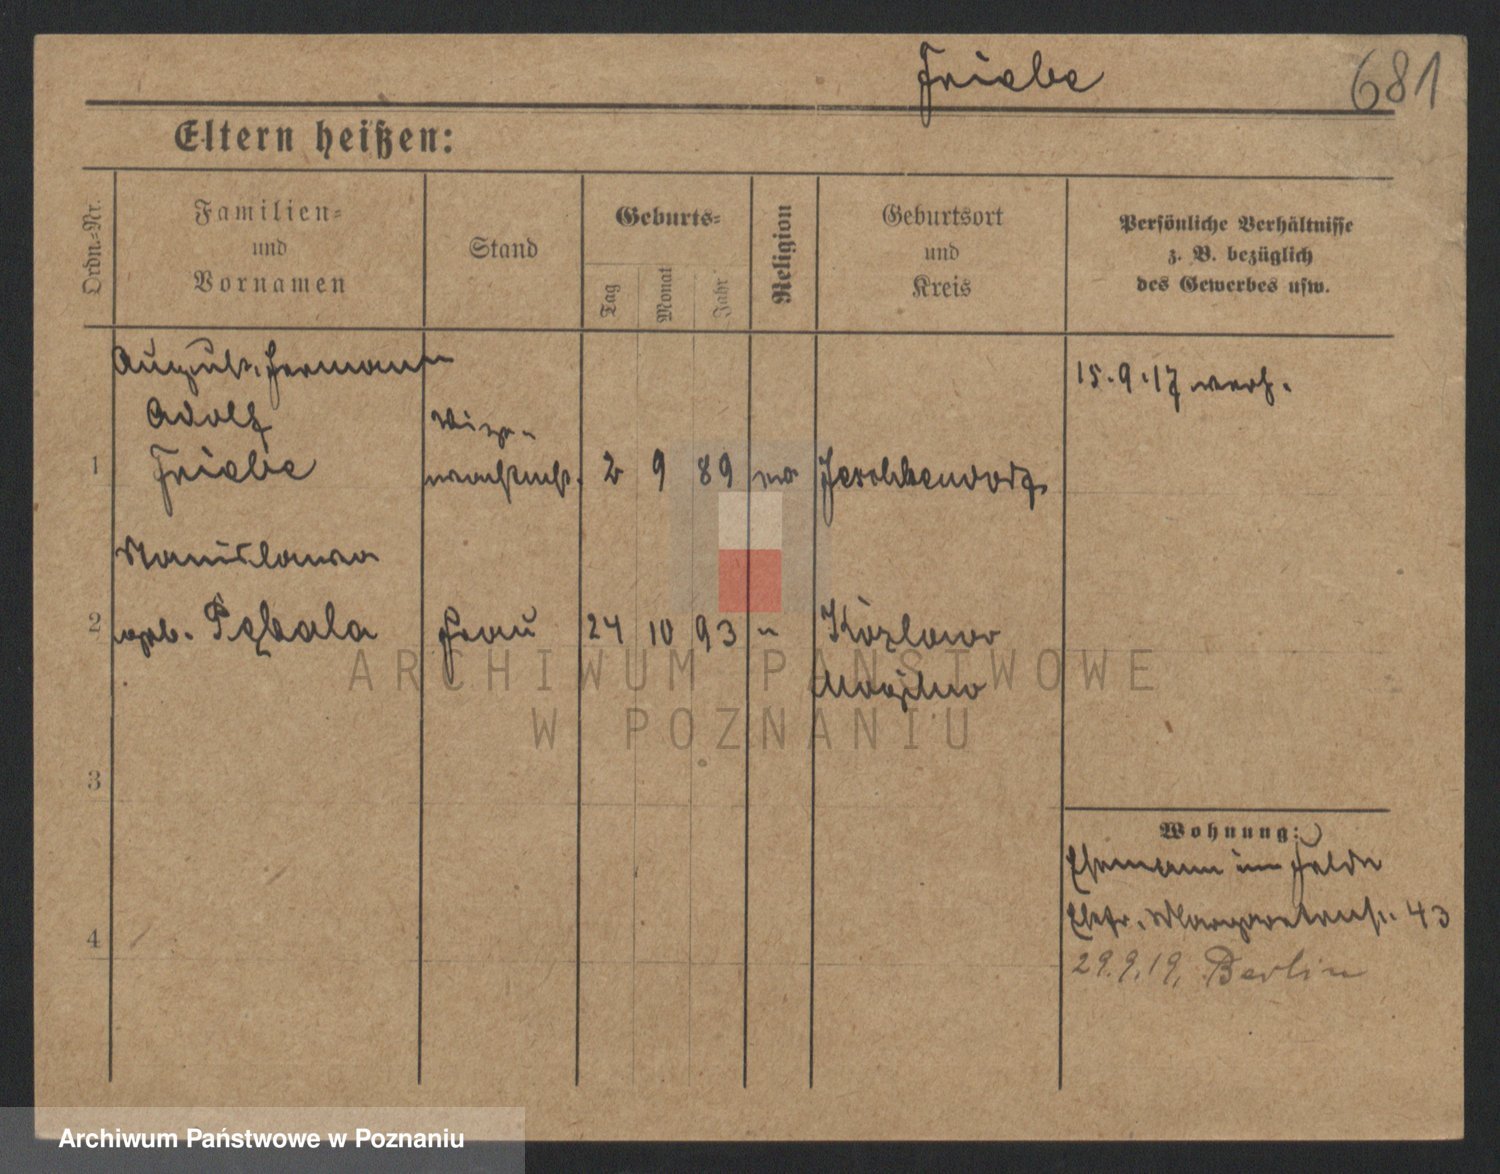 Friebe 681
Eltern heißen:
Ordn.-Nr.
Familien-
und
Vornamen
Stand
Geburts-
Tag
Monat
Jahr
Religion
Geburtsort
und
Kreis
Persönliche Verhältnisse
z. B. bezüglich
des Gewerbes usw.
August, Hermann
Adolf
Friebe
1
Vize-
wachtmstr.
2 9 89
Jeschkendorf
15.9.17 verh.
Stanislawa
2
geb. Pękala
Frau
24 10 93 "
Kozlowo
3
4
Wohnung:
Ehemann im Felde
Ehefr. Margaretenstr. 43
29.9.19. Berlin
ARCHIWUM PAŃSTWOWE
W POZNANIU
Archiwum Państwowe w Poznaniu